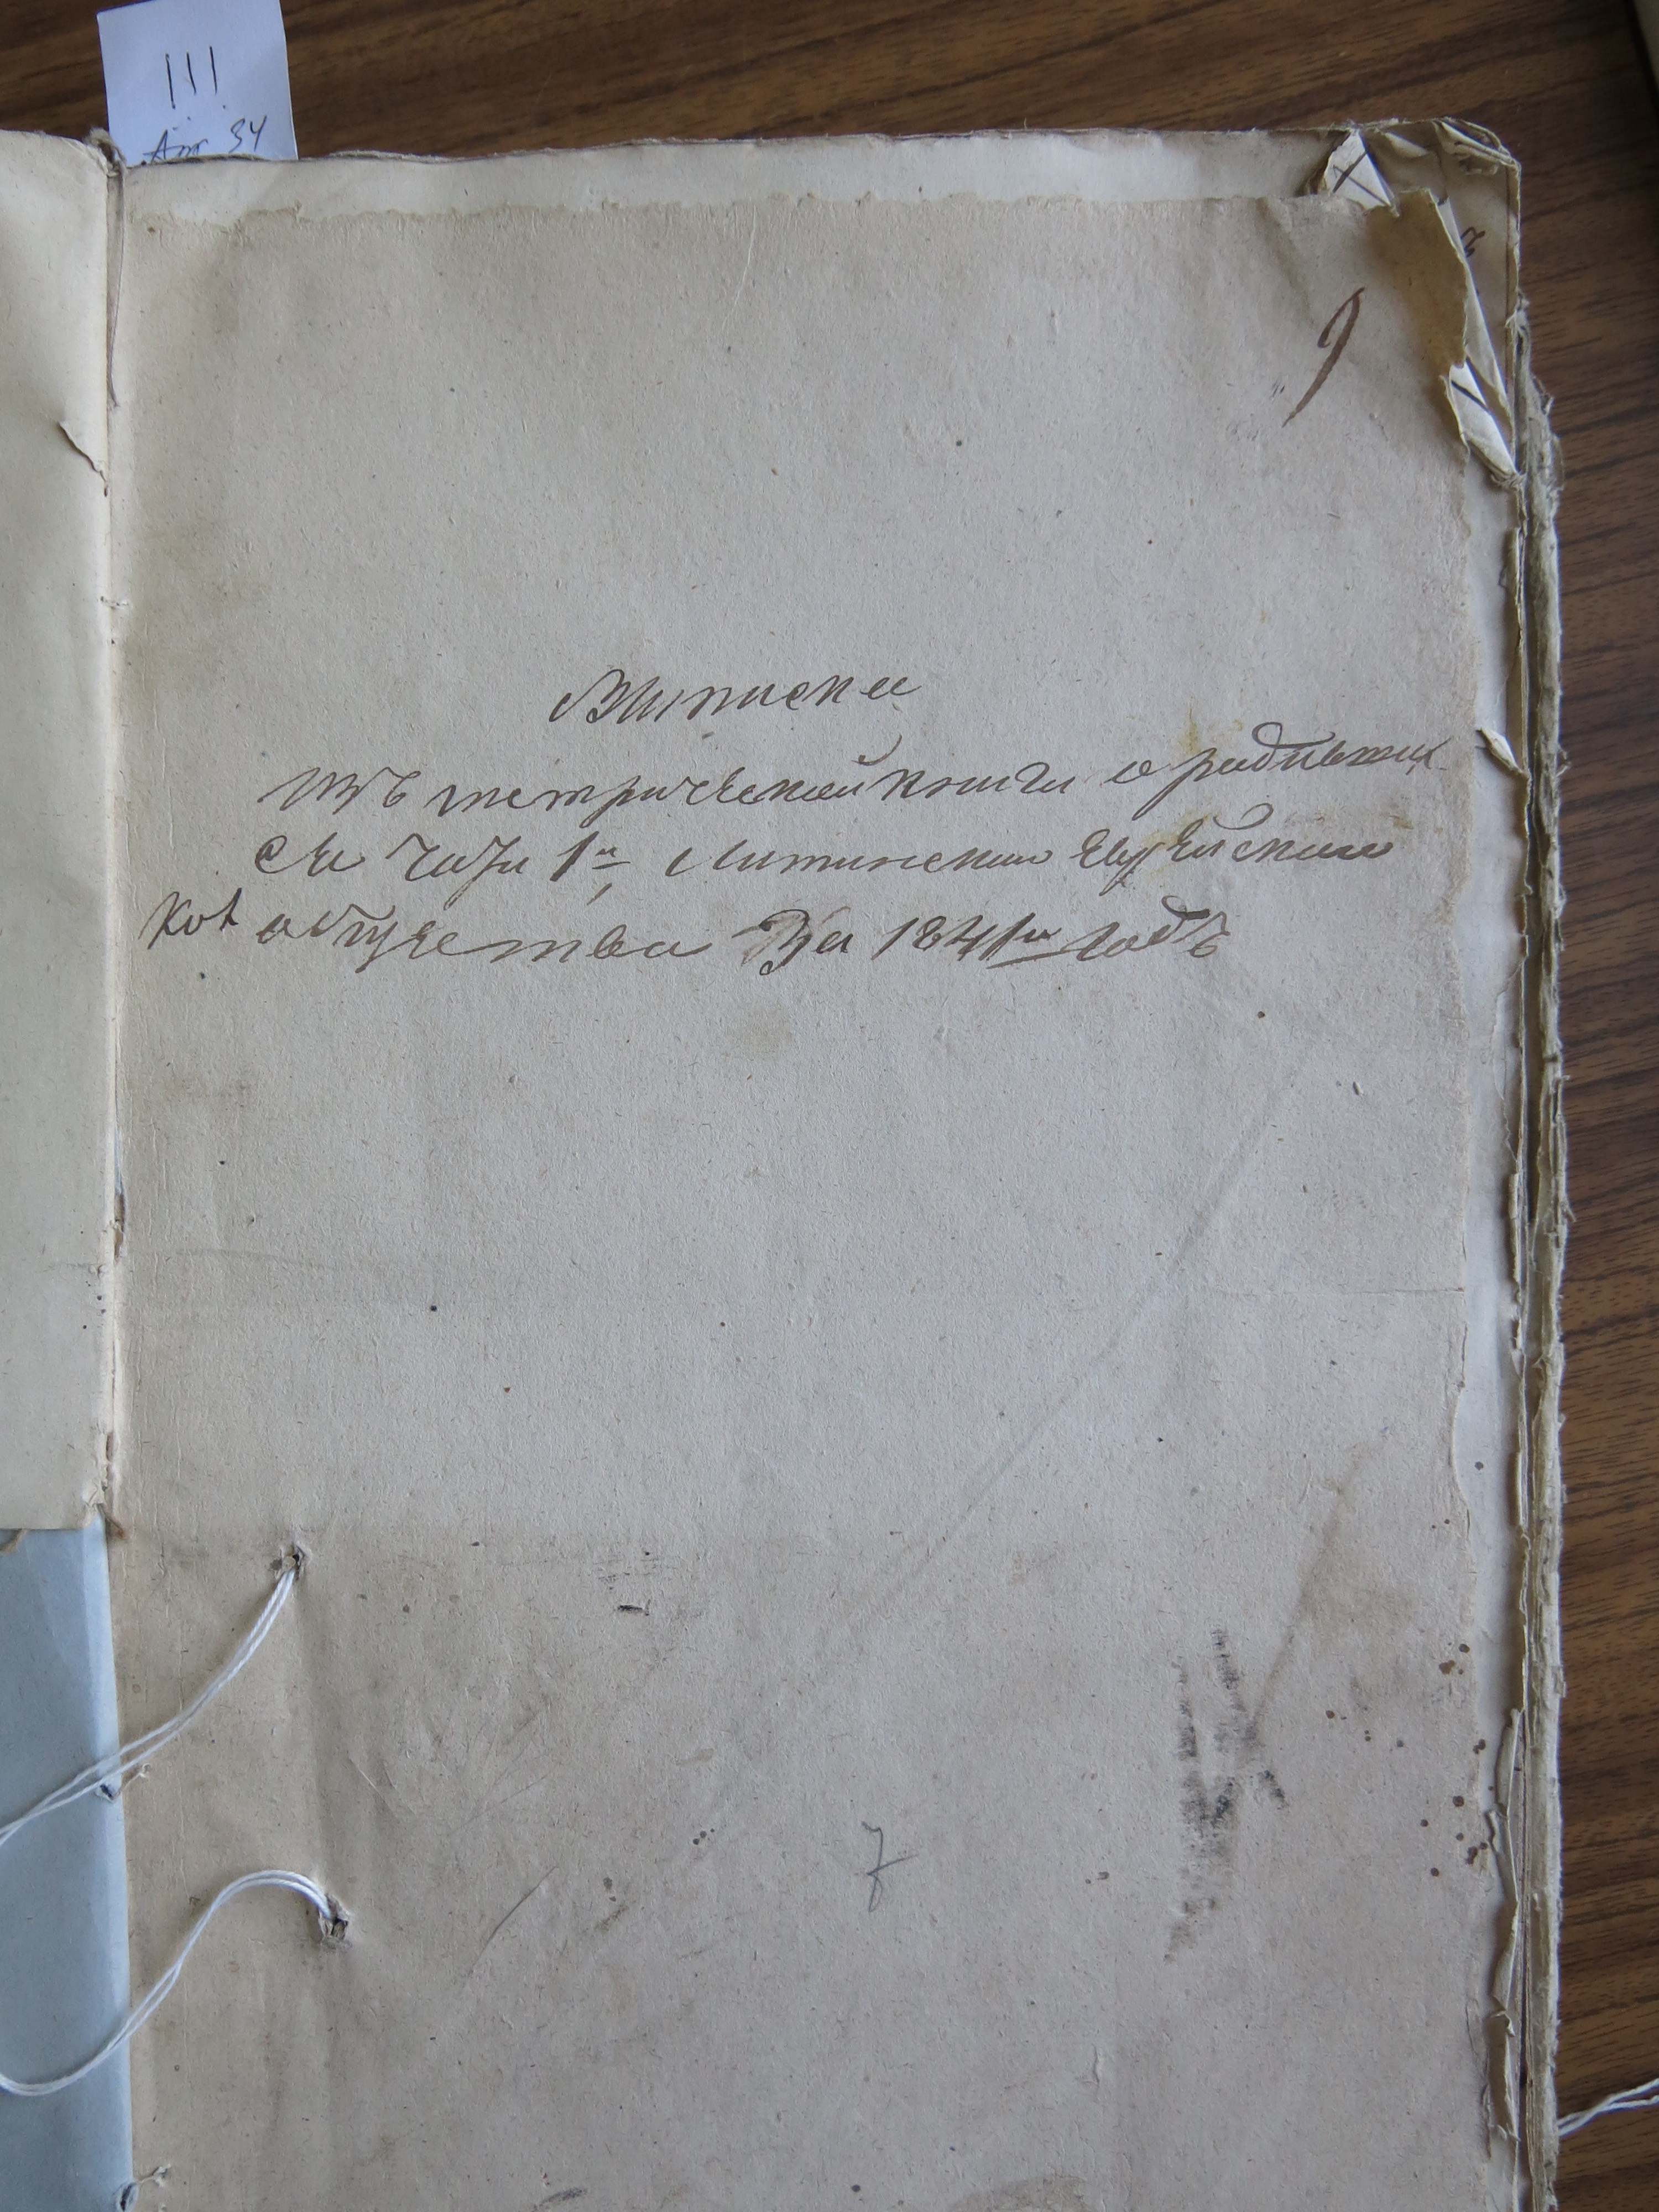 111
Апр 34
9
Выписка
Изъ метрической книги о родивших
ся части 1й Литинскаго Еврейскаго
Кот общества За 1841й годъ
7